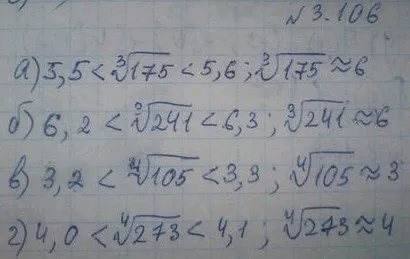 № 3.106
а) 5,5 < ∛175 < 5,6 ; ∛175 ≈ 6
б) 6,2 < ∛241 < 6,3 ; ∛241 ≈ 6
в) 3,2 < ∜105 < 3,3 ; ∜105 ≈ 3
г) 4,0 < ∜273 < 4,1 ; ∜273 ≈ 4